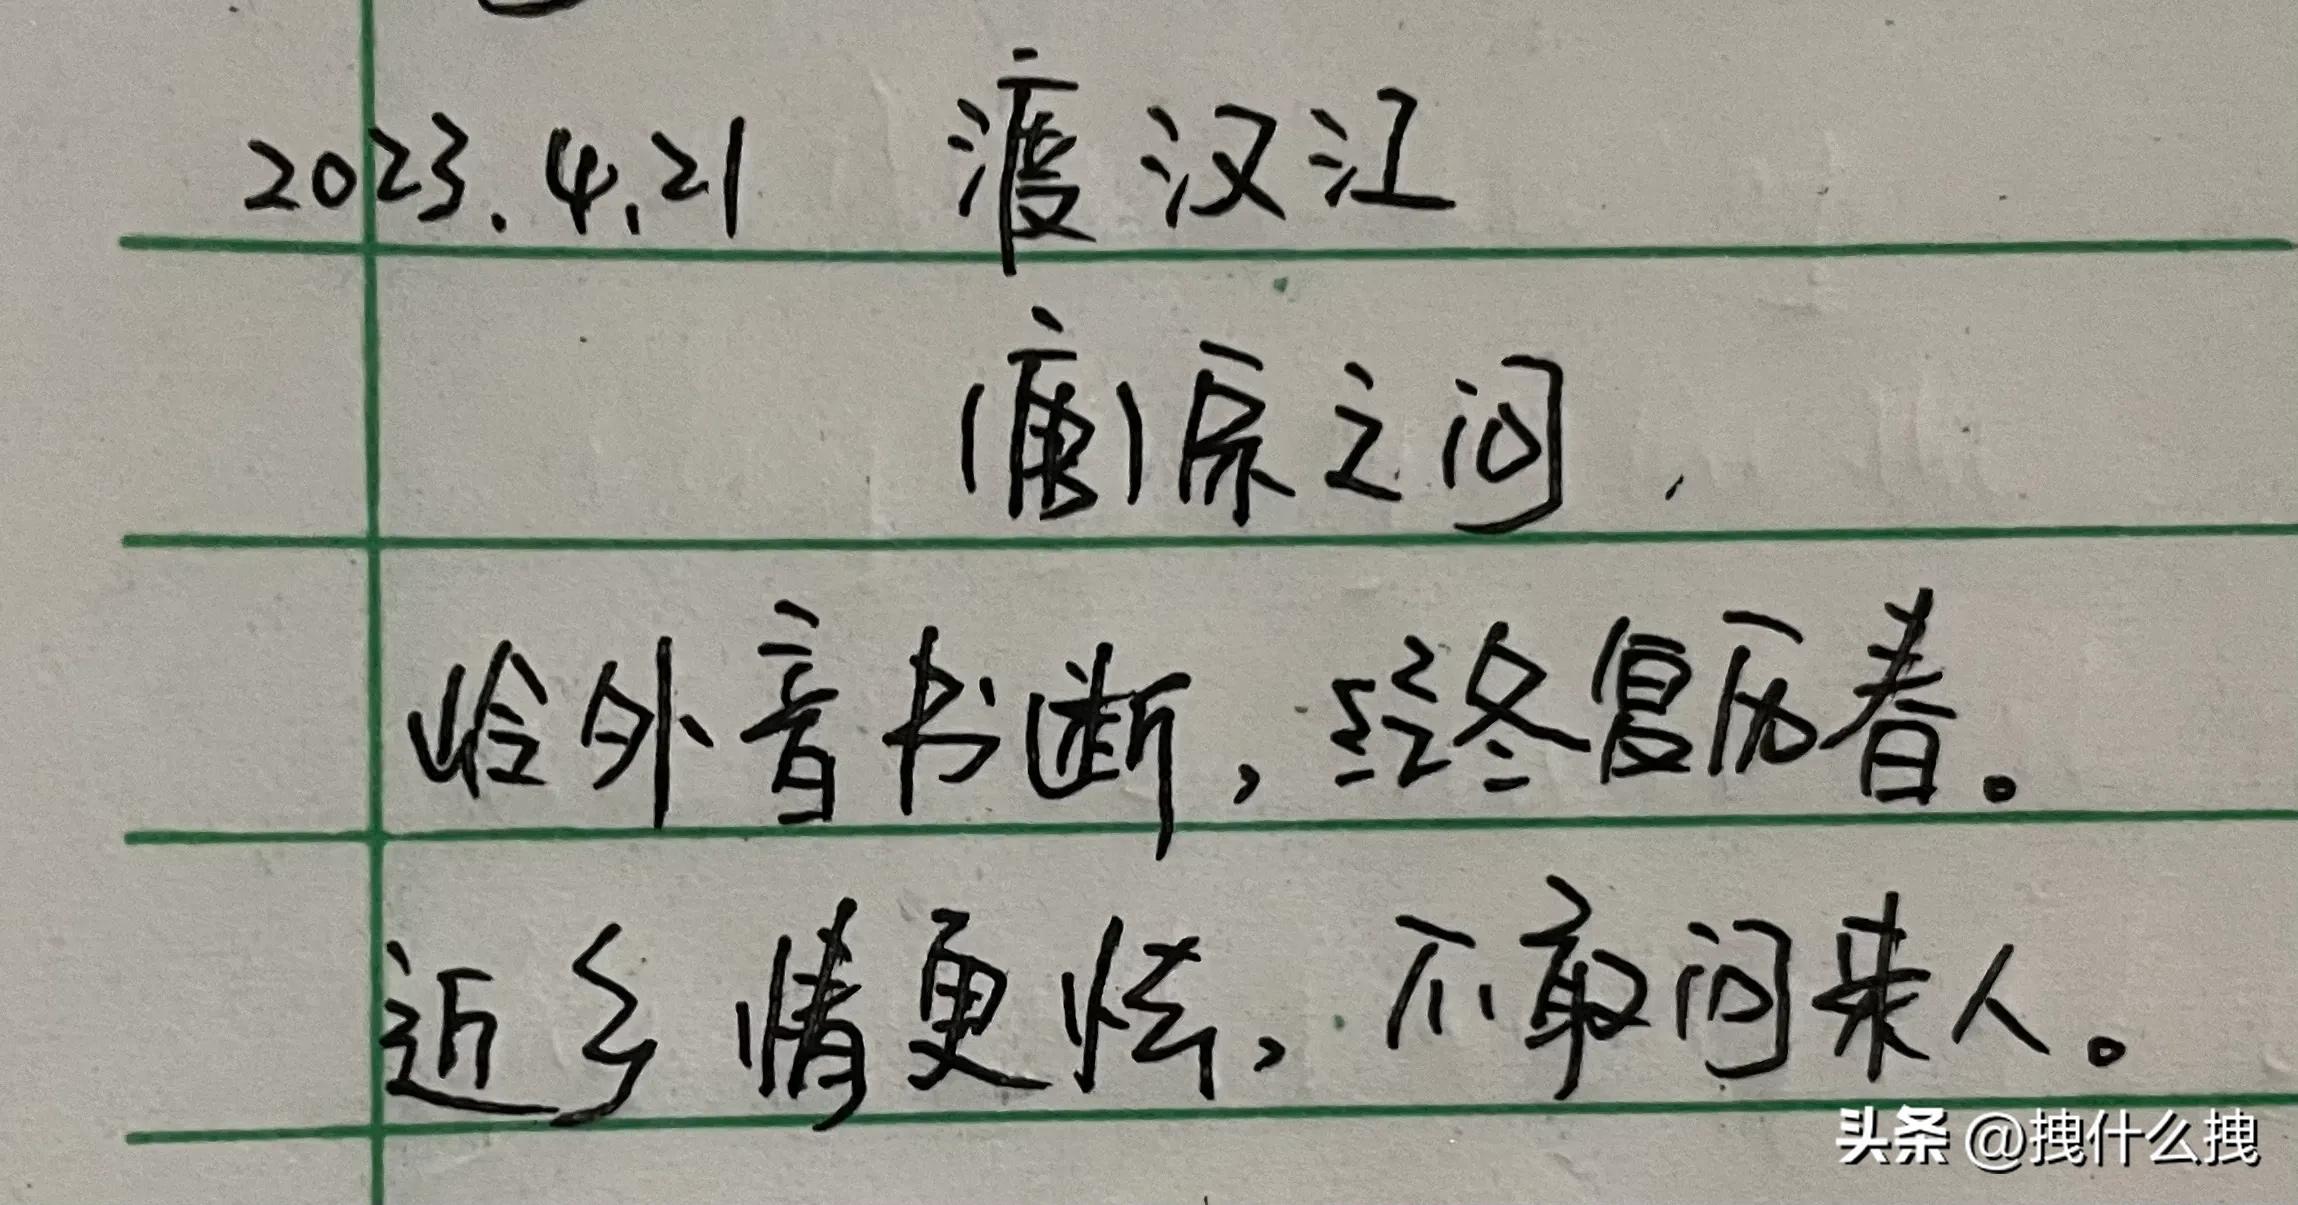 2023.4.21 渡汉江
(唐)宋之问
岭外音书断,经冬复历春。
近乡情更怯,不敢问来人。
头条 @拽什么拽